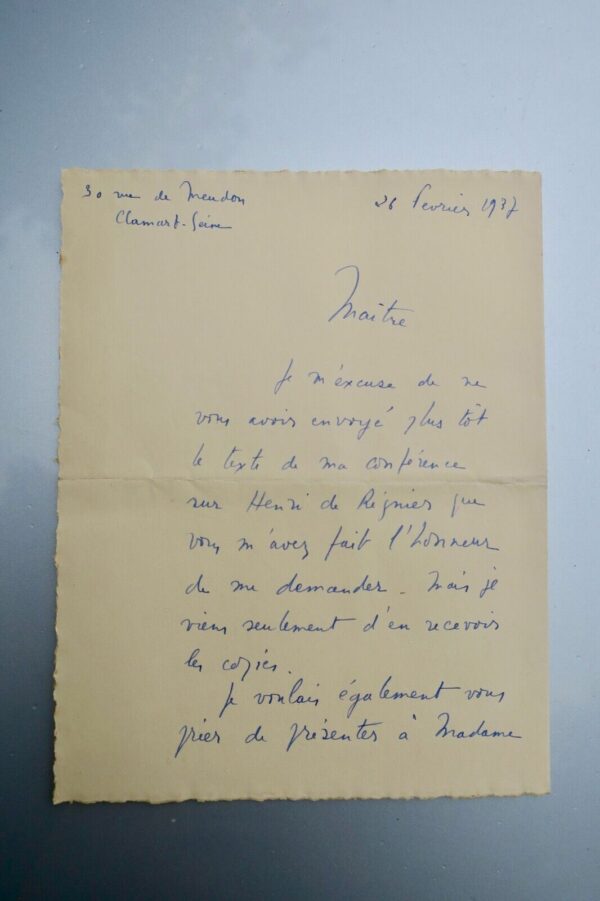 30 rue de Meudon
Clamart-Seine
26 fevrier 1937
Maître
Je m'excuse de ne
vous avoir envoyé plus tôt
le texte de ma conférence
sur Henri de Régnier que
vous m'avez fait l'honneur
de me demander. Mais je
viens seulement d'en recevoir
les copies.
Je voulais également vous
prier de présenter à Madame